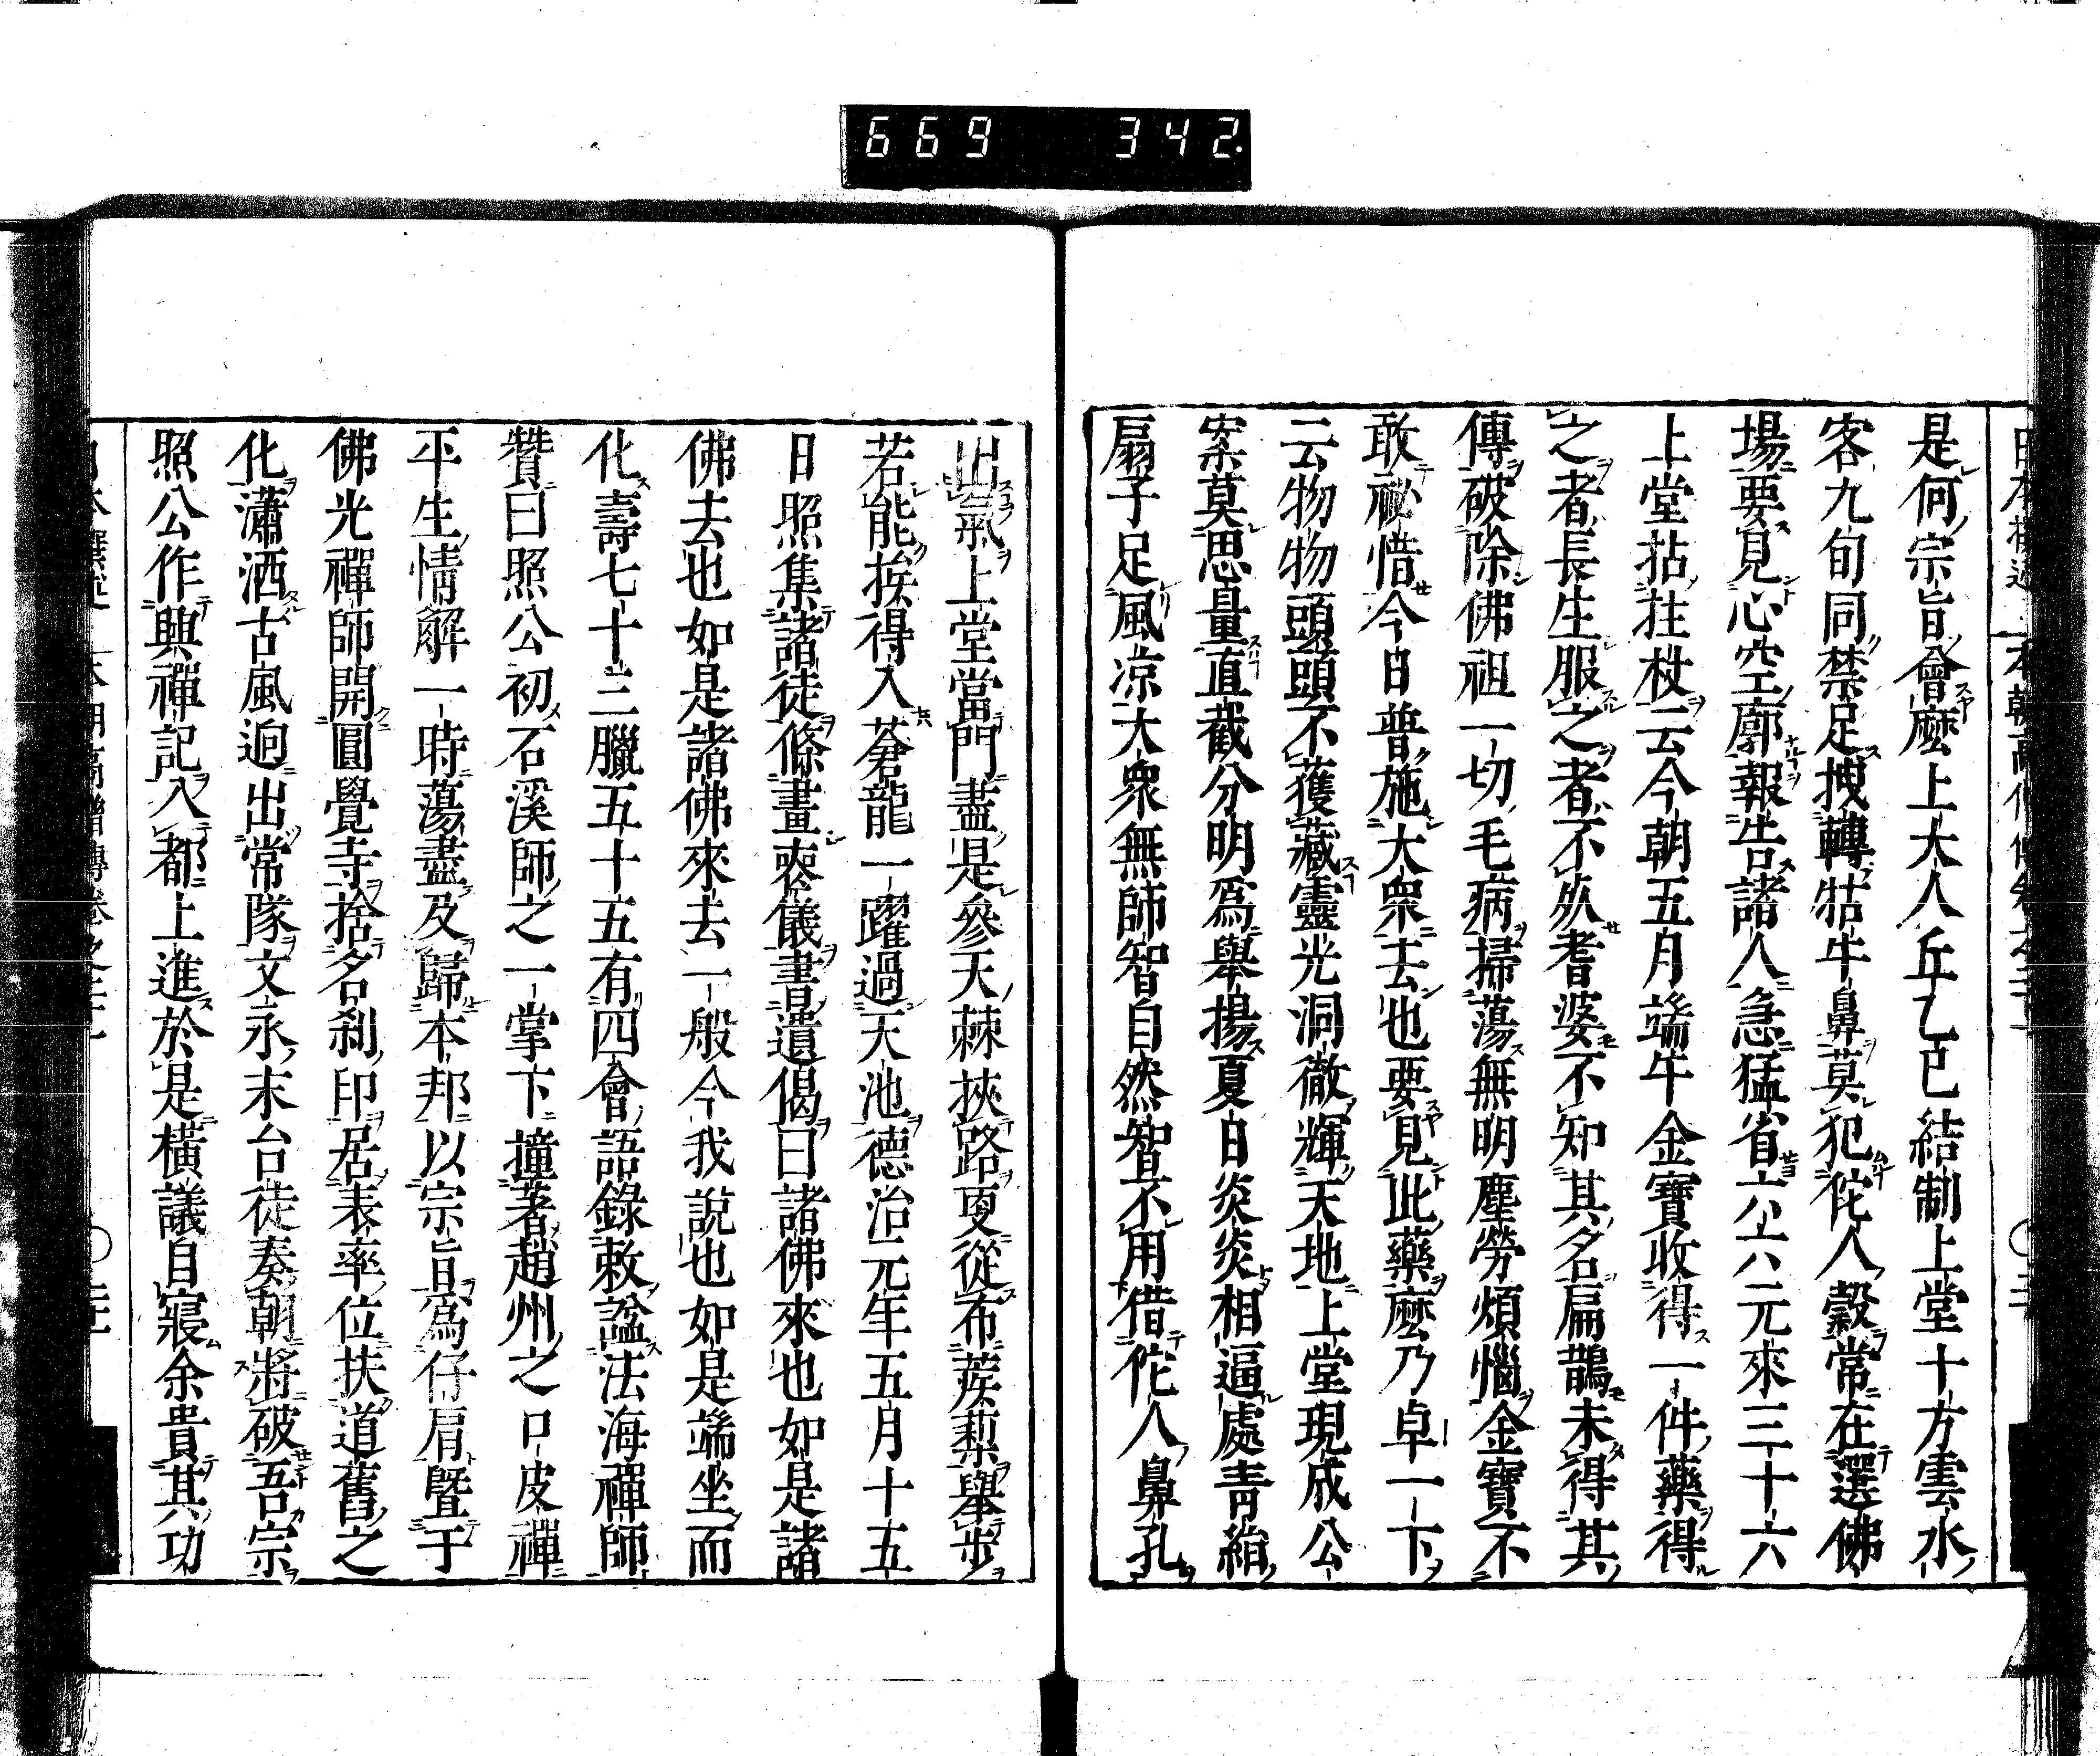 669 342.
是何宗旨會麼上大人丘乙已結制上堂十方雲水
客九旬同禁足拽轉牯牛鼻莫犯佗人穀常在選佛
場要見心空廓報告諸人急猛省六六元來三十六
上堂拈拄杖云今朝五月端午金寶收得一件藥得
之者長生服之者不死耆婆不知其名扁鵲未得其
傳破除佛祖一切毛病掃蕩無明塵勞煩惱金寶不
敢祕惜今日普施大衆去也要見此藥麼乃卓一下
云物物頭頭不獲藏靈光洞徹輝天地上堂現成公
案莫思量直截分明爲舉揚夏日炎炎相逼處青絹
扇子足風凉大衆無師智自然智不用借佗人鼻孔
出氣上堂當門盡是參天棘挾路更從布蒺蔾舉步
若能挨得入蒼龍一躍過天池德治元年五月十五
日照集諸徒條畫喪儀書遺偈曰諸佛來也如是諸
佛去也如是諸佛來去一般今我說也如是端坐而
化壽七十三臘五十五有四會語錄敕謚法海禪師
贊曰照公初石溪師之一掌下撞著趙州之口皮禪
平生情解一時蕩盡及歸本邦以宗旨爲仔肩暨于
佛光禪師開圓覺寺捨名刹印居表率位扶道舊之
化瀟洒古風迥出常隊文永末台徒奏朝將破吾宗
照公作興禪記入都上進於是橫議自寢余貴其功